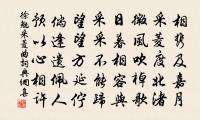 相攜及嘉月
采菱度北渚
微風吹棹歌
日暮相容與
采采不能歸
望望方延佇
倘逢遺佩人
預以心相許
徐勉采菱曲詞典網喜